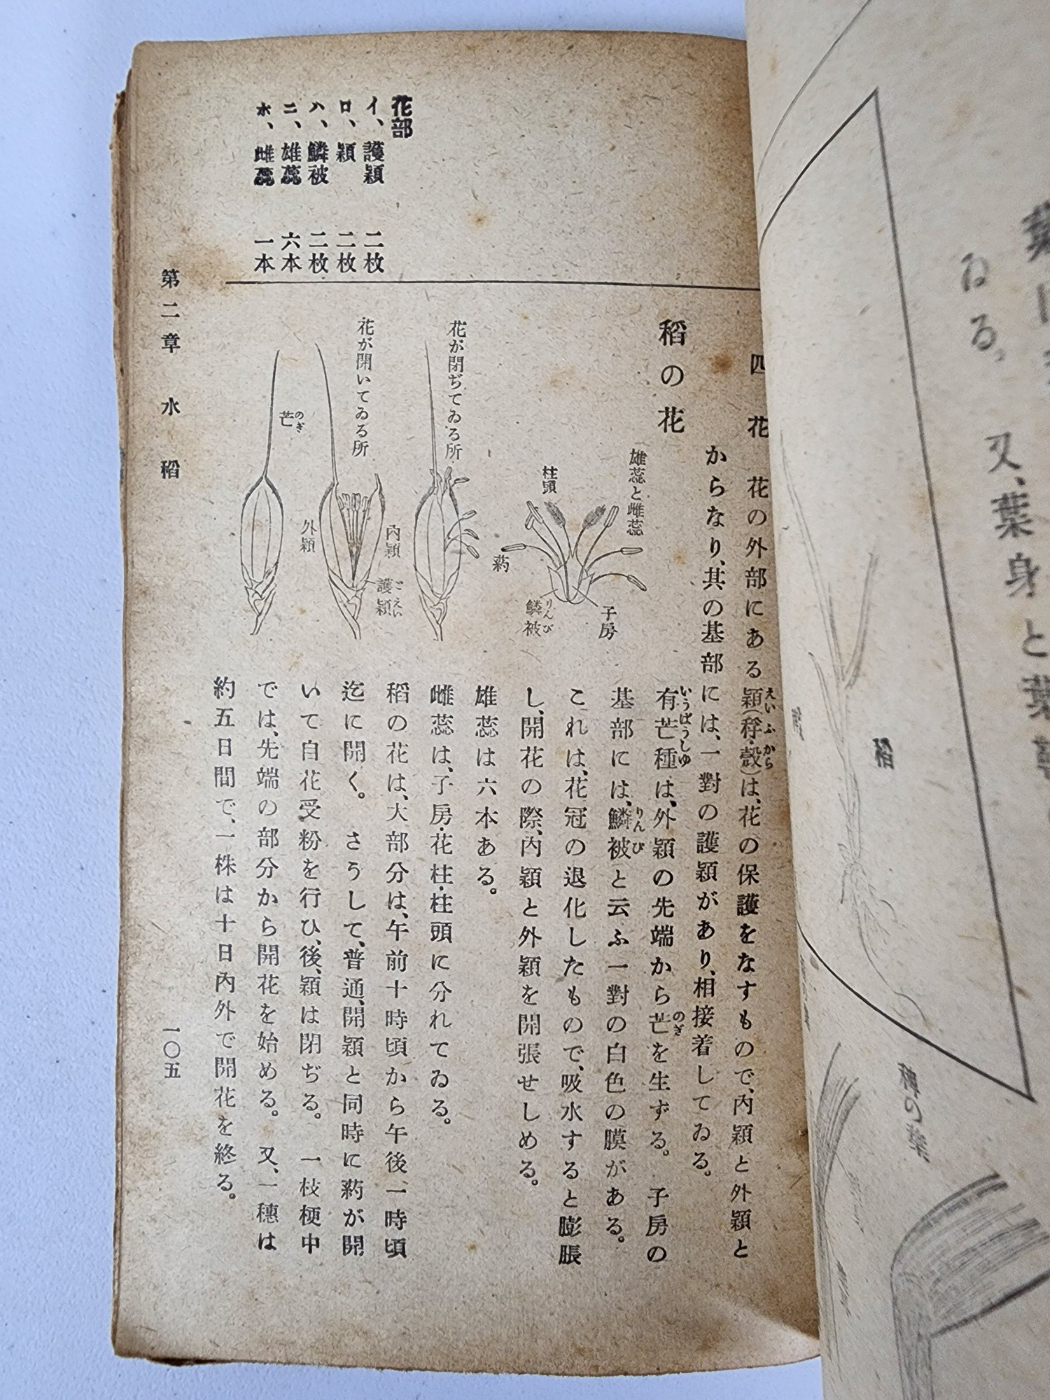 葉
ゐる。又、葉身と葉
稻
穗の葉
花部
イ、護穎 二枚
ロ、穎 二枚
ハ、鱗被 二枚
ニ、雄蕊 六本
ホ、雌蕊 一本
四 花 花の外部にある穎(稃・殼)は、花の保護をなすもので、內穎と外穎と
えい ふ から
からなり、其の基部には、一對の護穎があり、相接着してゐる。
有芒種は、外穎の先端から芒を生ずる。 子房の
いうばうしゆ
のぎ
基部には、鱗被と云ふ一對の白色の膜がある。
りんぴ
これは、花冠の退化したもので、吸水すると膨脹
し、開花の際、內穎と外穎を開張せしめる。
雄蕊は六本ある。
雌蕊は、子房・花柱・柱頭に分れてゐる。
稻の花は、大部分は、午前十時頃から午後一時頃
迄に開く。 さうして、普通、開穎と同時に葯が開
いて自花受粉を行ひ、後、穎は閉ぢる。 一枝梗中
では、先端の部分から開花を始める。 又、一穗は
約五日間で、一株は十日內外で開花を終る。
稻の花
雄蕊と雌蕊
柱頭
葯
鱗被
りんぴ
子房
花が閉ぢてゐる所
花が開いてゐる所
內穎
護穎
ごえい
外穎
芒
のぎ
第二章 水稻
一〇五